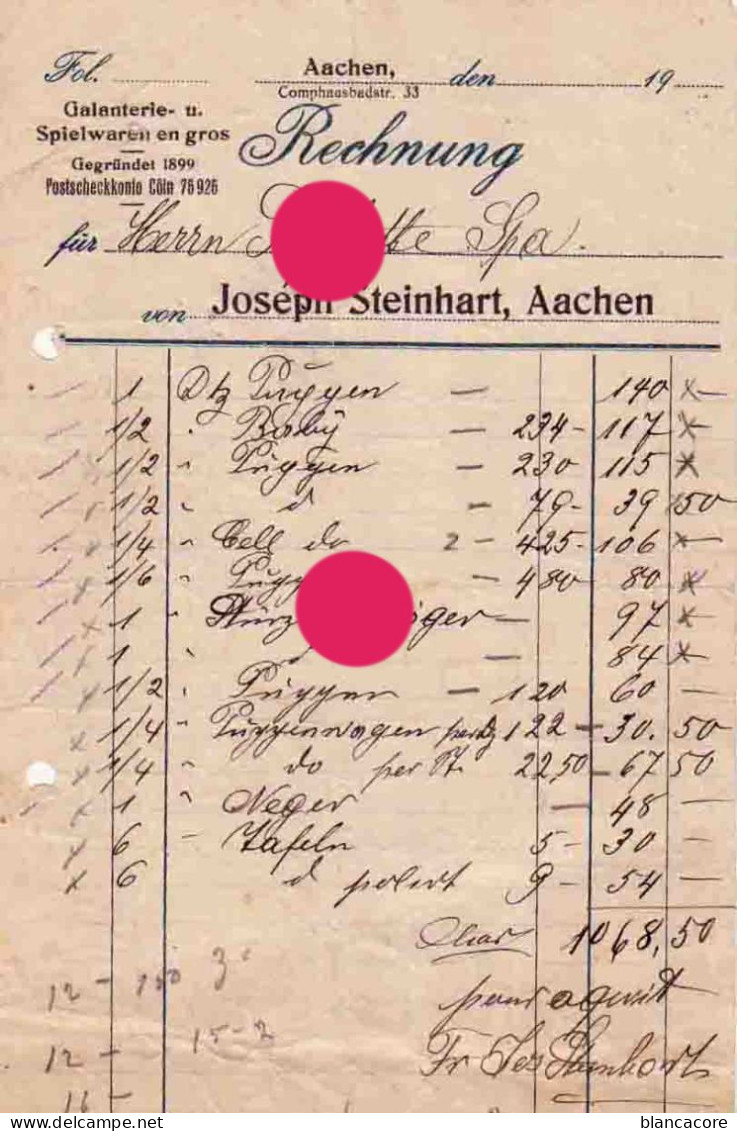 Fol. Aachen, den 19
Comphausbadstr. 33
Galanterie- u.
Spielwaren en gros
Gegründet 1899
Postscheckkonto Cöln 76926
Rechnung
für Herrn Spa.
von Joseph Steinhart, Aachen
1 Dtz Puppen — 140 —
1/2 " Baby — 234 - 117 —
1/2 " Puppen — 230 115 —
1/2 " d — 79 - 39 50
1/4 " Cell do 2 - 425 - 106 —
1/6 " — 480 - 80 —
1 " — 97 —
1 " — 84 —
1/2 " Puppen — 120 60 —
1/4 " Puppenwagen per Dz 122 - 30. 50
1/4 " do per St. 22 50 - 67 50
1 " Neger — 48 —
6 - Tafeln 5 - 30 —
6 d poliert 9 - 54 —
1068,50
12 - 150
pour aquit
15 - 2
12 -
Fr Jos Steinhart
16 -
blancacore